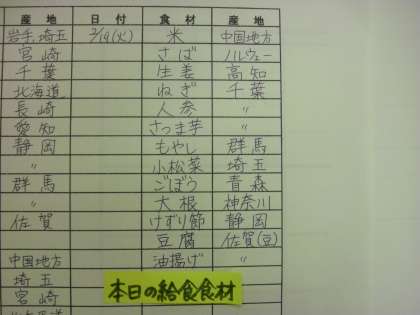 産地 日付 食材 産地
岩手,埼玉 2/19(火) 米 中国地方
宮崎 さば ノルウェー
千葉 生姜 高知
北海道 ねぎ 千葉
長崎 人参 〃
愛知 さつま芋 〃
静岡 もやし 群馬
〃 小松菜 埼玉
群馬 ごぼう 青森
〃 大根 神奈川
佐賀 けずり節 静岡
豆腐 佐賀(豆)
中国地方 油揚げ 〃
埼玉
宮崎
本日の給食食材